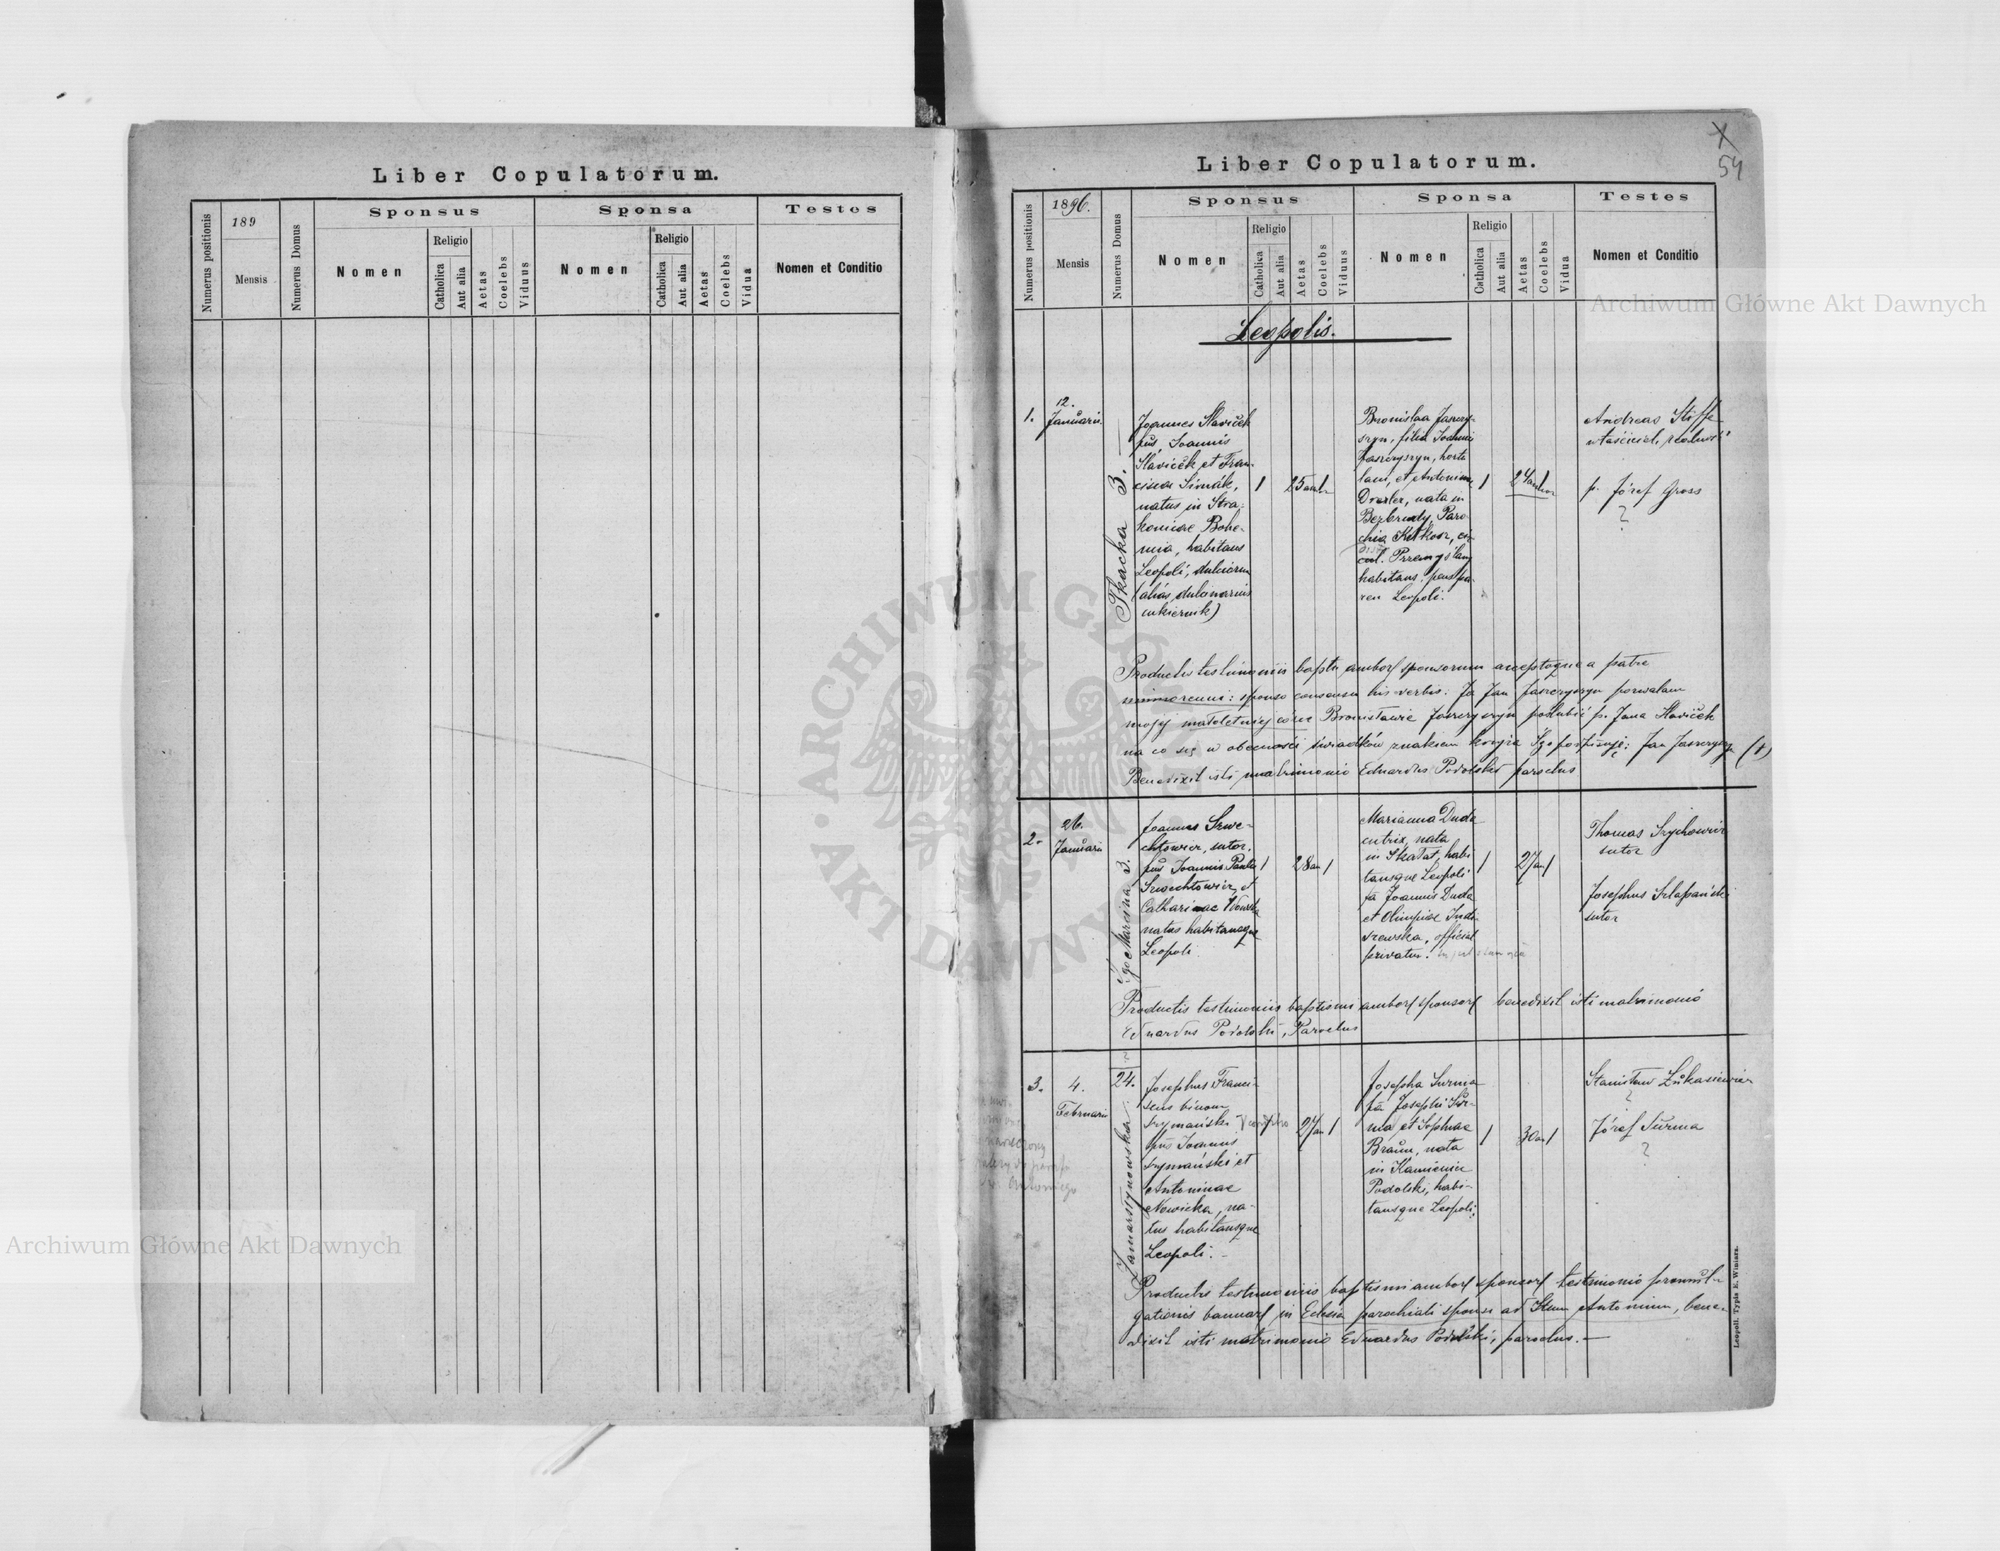 Liber Copulatorum.
Numerus positionis
189
Mensis
Numerus Domus
Sponsus
Nomen
Religio
Catholica
Aut alia
Aetas
Coelebs
Viduus
Sponsa
Nomen
Religio
Catholica
Aut alia
Aetas
Coelebs
Vidua
Testes
Nomen et Conditio
Liber Copulatorum.
54
Numerus positionis
1896.
Mensis
Numerus Domus
Sponsus
Nomen
Religio
Catholica
Aut alia
Aetas
Coelebs
Viduus
Sponsa
Nomen
Religio
Catholica
Aut alia
Aetas
Coelebs
Vidua
Testes
Nomen et Conditio
Leopolis.
1.
12.
Januarii
Tkacka 3.
Joannes Slaviček
fius Joannis
Slaviček et Fran-
ciscae Simák,
natus in Stra-
konicae Bohe-
mia, habitans
Leopoli, dulciorum
(alias dulcinarius
cukiernik)
1
25
1
Bronislaa Jaszczy-
szyn, filia Joannis
Jaszczyszyn, horta
lani, et Antoninae
Drexler, nata in
Bezbrudy, Paro-
chia
habitans
Leopoli.
1
24
Andreas
właściciel realnośi
p. Józef Gross
?
Productis testimoniis bapti. ambor sponsorum acceptoque a patre
sponso consensu his verbis: Ja Jan Jaszczyszyn pozwalam
mojej małoletniej córce Bronisławie Jaszczyszyn poślubić p. Jana Slaviček
na co się w obecności świadków znakiem krzyża Śgo podpisuję: Jan Jaszczyszyn (+)
Benedixit isti matrimonio Eduardus Podolski parochus
2.
26.
Januarii
Sgo Marcina 3.
Joannes Szwe-
chtowicz, sutor,
fius Joannis Pauli
Szwechtowicz et
Catharinae
natus habitansque
Leopoli
1
28 an
1
Marianna Duda
nata
in Skałat, habi
tansque Leopoli
fa Joannis Duda
et Olimpiae Jędr-
zewska, official
privatus.
1
27 an
1
Thomas Szychowicz
sutor
Josephus Szlapański
sutor
Productis testimoniis baptismi ambor sponsor benedixit isti matrimonio
Eduardus Podolski, Parochus
3.
4.
Februarii
?
24.
Zamarstynowska
Josephus Franci-
scus binom
Szymański
fius Joannis
Szymański et
Antoninae
Nowicka, na-
tus habitansque
Leopoli.
27 an
1
Josepha Surma
fa Josephi Sur-
ma et Sophiae
Braun, nata
in Kamieniec
Podolski, habi-
tansque Leopoli,
1
30 an
1
Stanisław Łukasiewicz
?
Józef Surma
?
Productis testimoniis baptismi ambor sponsor testimonio promul-
gationis bannor in Eclesia parochiali sponsi ad Stum Antonium, bene-
dixit isti matrimonio Eduardus Podolski, parochus.
Leopoli. Typis E. Winiarz.
Archiwum Główne Akt Dawnych
Archiwum Główne Akt Dawnych
ARCHIWUM GŁÓWNE AKT DAWNYCH